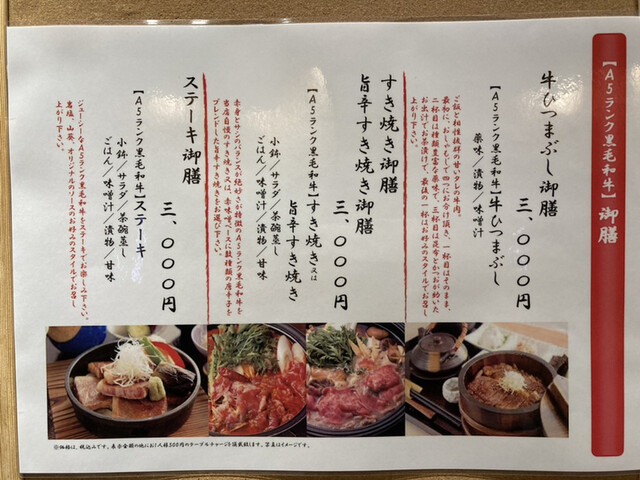 【A5ランク黒毛和牛】御膳
牛ひつまぶし御膳
三、〇〇〇円
【A5ランク黒毛和牛】牛ひつまぶし
薬味／漬物／味噌汁
ご飯と相性抜群の甘いタレの牛肉。
最初に、おしゃもじで四つにお分け頂き、一杯目はそのまま、
二杯目は種類豊富な薬味で、三杯目は昆布とかつおが効いた
お出汁でお茶漬けで、最後の一杯はお好みのスタイルでお召し
上がり下さい。
すき焼き御膳
旨辛すき焼き御膳
三、〇〇〇円
【A5ランク黒毛和牛】すき焼き又は
旨辛すき焼き
小鉢／サラダ／茶碗蒸し
ごはん／味噌汁／漬物／甘味
赤身とサシのバランスが絶妙さが特徴のA5ランク黒毛和牛を
当店自慢のすき焼き又は、赤味噌ベースに数種類の唐辛子を
ブレンドした旨辛すき焼きをお選び下さい。
ステーキ御膳
三、〇〇〇円
【A5ランク黒毛和牛】ステーキ
小鉢／サラダ／茶碗蒸し
ごはん／味噌汁／漬物／甘味
ジューシーなA5ランク黒毛和牛をステーキでお楽しみ下さい。
岩塩、山葵、オリジナルのソースのお好みのスタイルでお召し
上がり下さい。
※価格は、税込みです。表示金額の他にお1人様500円のテーブルチャージを頂戴致します。写真はイメージです。